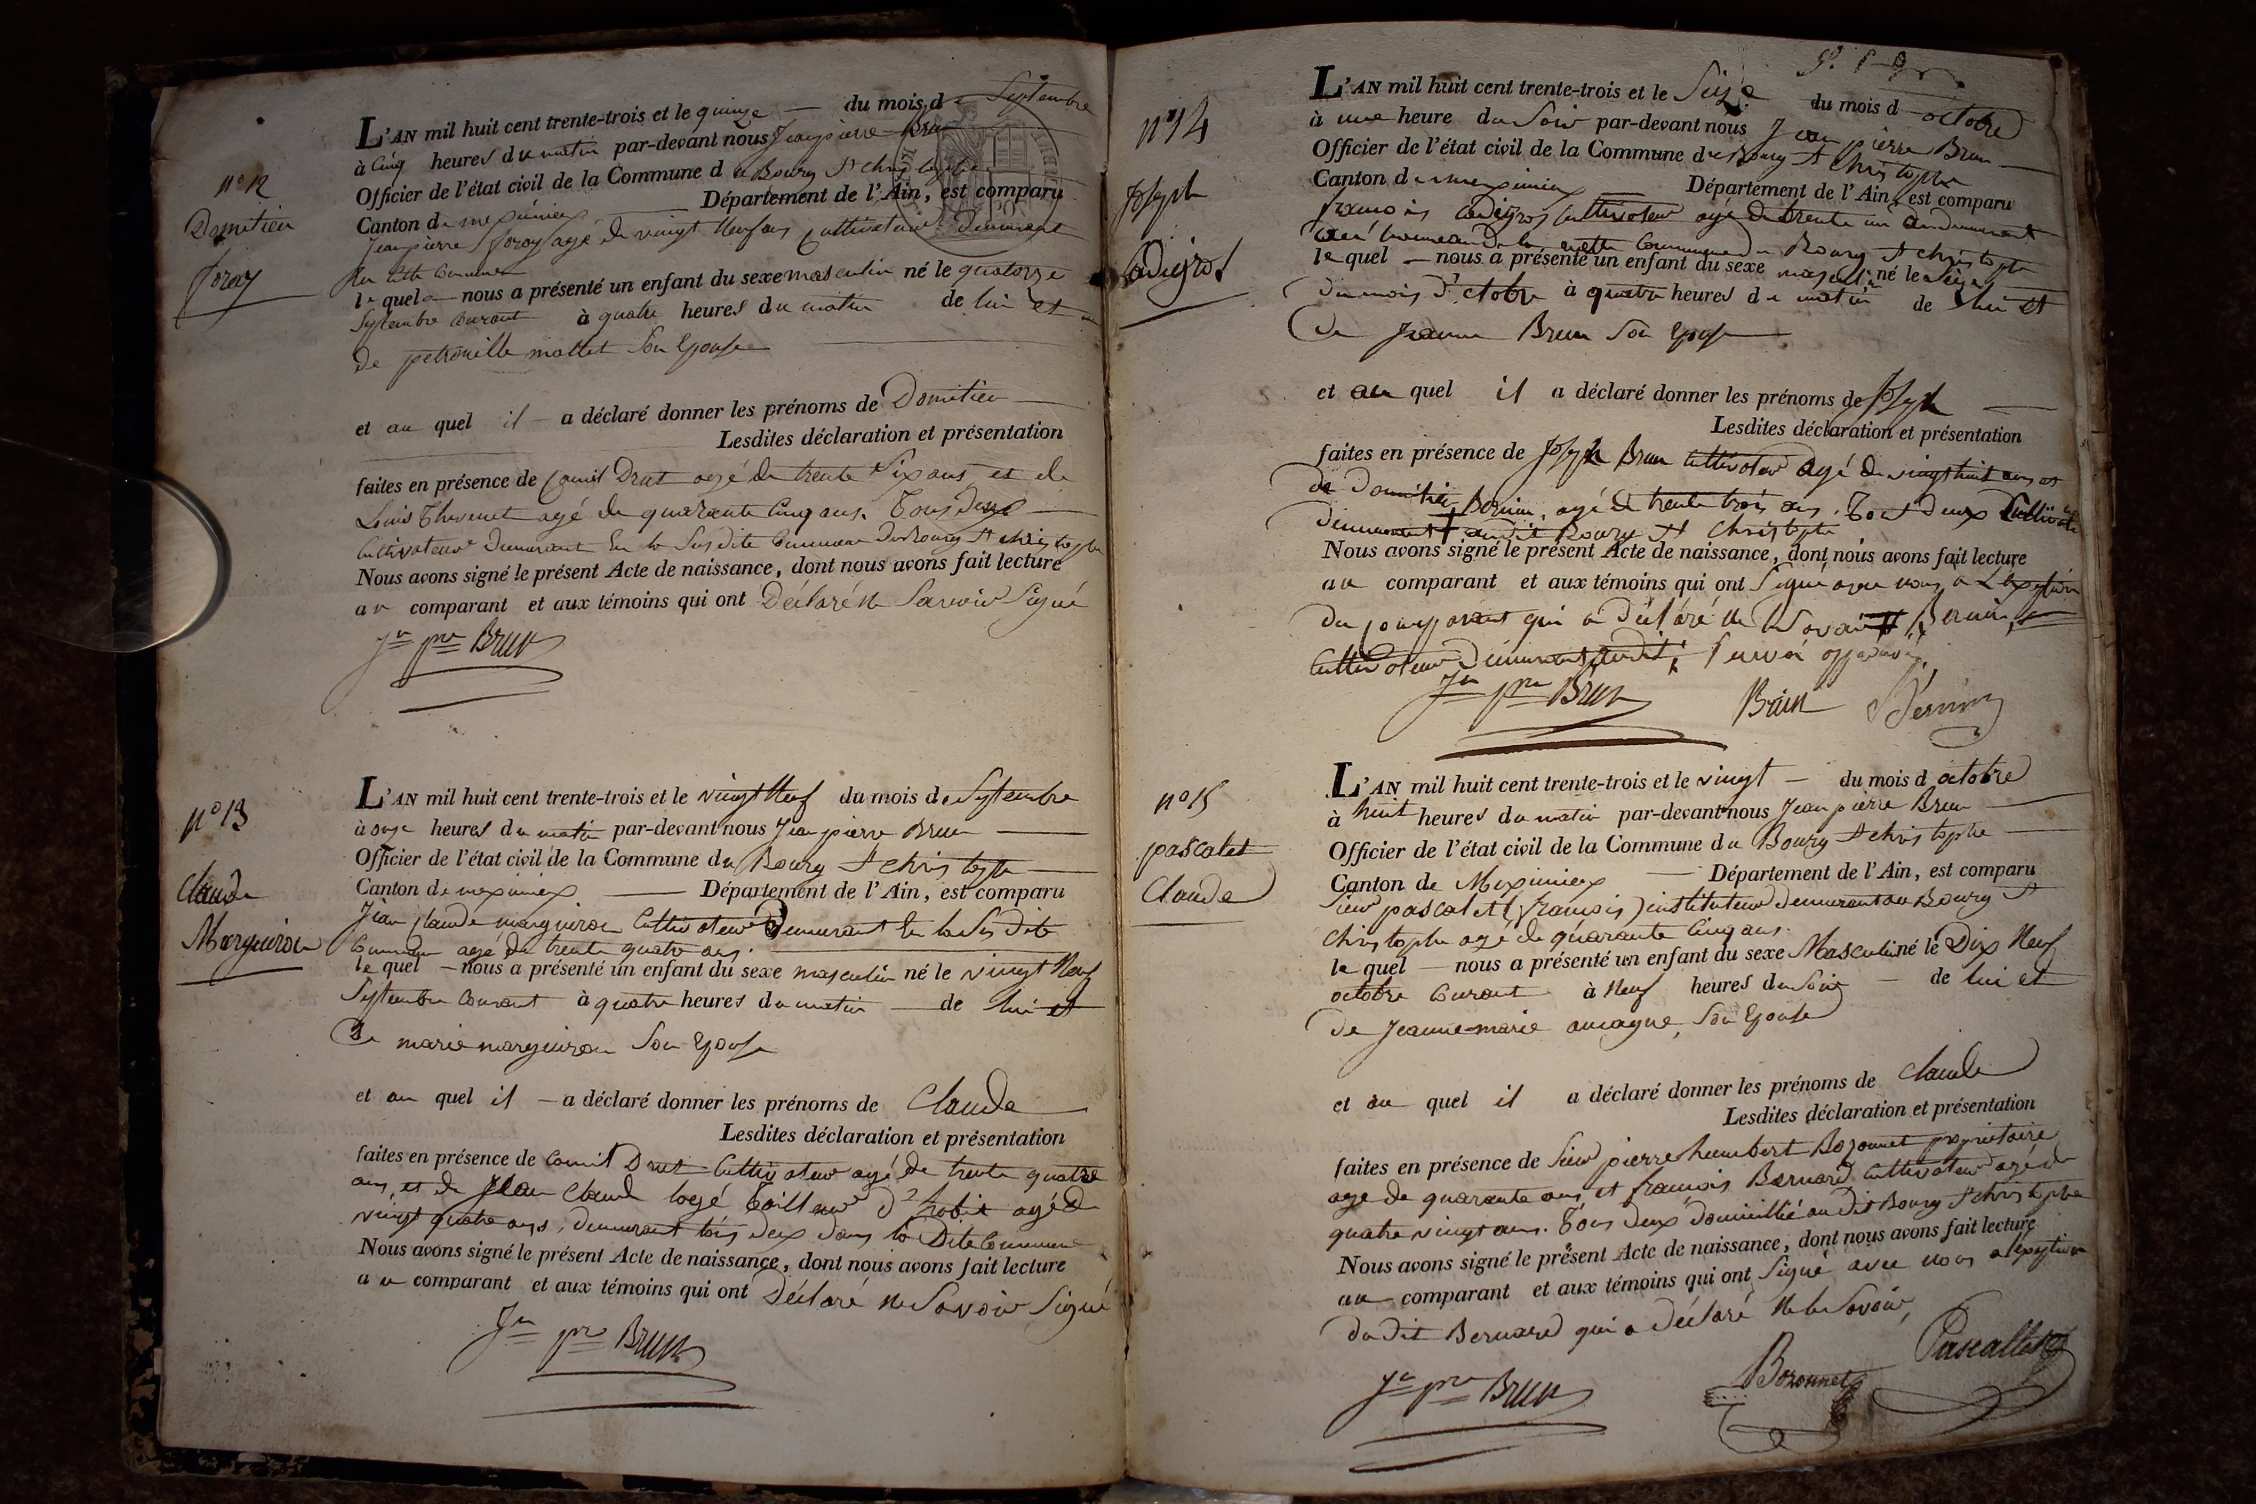 n° 12
Domitien
foray
L'AN mil huit cent trente-trois et le quinze du mois de Septembre
à cinq heures du matin par-devant nous Jean pierre Brun
Officier de l'état civil de la Commune du Bourg St christophe
Canton de meximieux Département de l'Ain, est comparu
Jean pierre foray agé de vingt Neuf ans cultivateur demeurant
cette Commune
le quel nous a présenté un enfant du sexe masculin né le quatorze
Septembre courant à quatre heures du matin de lui et
de petronille mallet Son Epouse
et au quel il a déclaré donner les prénoms de Domitien
Lesdites déclaration et présentation
faites en présence de Drut agé de trente Six ans et de
Louis Thevenet agé de quarante Cinq ans. Tous deux
Cultivateur Demeurant En la Susdite Commune du Bourg St christophe
Nous avons signé le présent Acte de naissance, dont nous avons fait lecture
au comparant et aux témoins qui ont Déclaré Ne Savoir Signé
Jn pre Brun
n° 13
Claude
Marguiron
L'AN mil huit cent trente-trois et le vingt Neuf du mois de Septembre
à onze heures du matin par-devant nous Jean pierre Brun
Officier de l'état civil de la Commune du Bourg St christophe
Canton de meximieux Département de l'Ain, est comparu
Jean Claude marguiron Cultivateur Demeurant En la Sus Dite
Commune agé de trente quatre ans.
le quel nous a présenté un enfant du sexe masculin né le vingt Neuf
Septembre Courant à quatre heures du matin de lui et
De marie marguiron Son Epouse
et au quel il a déclaré donner les prénoms de Claude
Lesdites déclaration et présentation
faites en présence de Drut Cultivateur agé de trente quatre
ans, et de Jean Claude tailleur d'habit agé de
vingt quatre ans, demeurant tous deux dans la Dite Commune
Nous avons signé le présent Acte de naissance, dont nous avons fait lecture
au comparant et aux témoins qui ont Déclaré Ne Savoir Signé
Jn pre Brun
n° 14
Joseph
adigros
L'AN mil huit cent trente-trois et le Seize du mois d octobre
à une heure du Soir par-devant nous Jean pierre Brun
Officier de l'état civil de la Commune du Bourg St Christophe
Canton de meximieux Département de l'Ain, est comparu
françois adigros Cultivateur agé de trente un an demeurant
Commune du Bourg St christophe
le quel nous a présenté un enfant du sexe masculin né le Seize
du mois d'octobre à quatre heures du matin de lui et
De Jeanne Brun Son Epouse
et au quel il a déclaré donner les prénoms de Joseph
Lesdites déclaration et présentation
faites en présence de Joseph Brun Cultivateur agé de vingt huit ans et
de Domitien Bernin, agé de trente trois ans. Tous deux Cultivateur
demeurant audit Bourg St Christophe
Nous avons signé le présent Acte de naissance, dont nous avons fait lecture
au comparant et aux témoins qui ont Signé avec nous a L'exception
du Comparant qui a Déclaré ne le Savoir Bernin
Cultivateur Demeurant audit, Renvoi approuvé
Jn pre Brun Brun Bernin
n° 15
pascalet
Claude
L'AN mil huit cent trente-trois et le vingt du mois d octobre
à huit heures du matin par-devant nous Jean pierre Brun
Officier de l'état civil de la Commune du Bourg St christophe
Canton de Meximieux Département de l'Ain, est comparu
Sieur pascalet (françois) instituteur demeurant au Bourg St
Christophe agé de quarante Cinq ans.
le quel nous a présenté un enfant du sexe Masculin né le Dix Neuf
octobre Courant à Neuf heures du Soir de lui et
de Jeanne-marie aucagne, Son Epouse
et au quel il a déclaré donner les prénoms de Claude
Lesdites déclaration et présentation
faites en présence de Sieur pierre humbert Bozonnet proprietaire
agé de quarante ans et francois Bernard Cultivateur agé de
quatre vingt ans. Tous deux domicillié au Dit Bourg St christophe
Nous avons signé le présent Acte de naissance, dont nous avons fait lecture
au comparant et aux témoins qui ont Signé avec nous a lexeption
du dit Bernard qui a Déclaré Ne le Savoir,
Jn pre Brun Bozonnet Pascallet